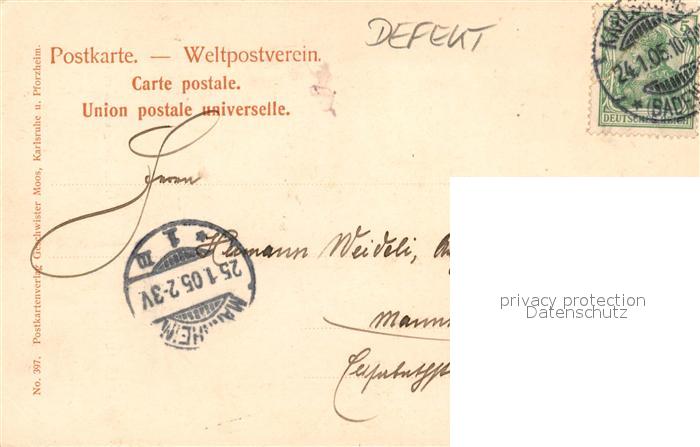 Postkarte. — Weltpostverein.
Carte postale.
Union postale universelle.
DEFEKT
KARLSRUHE
24.1.05.10
(BADEN)
DEUTSCHES REICH
Herrn
Hermann Weideli,
Mann
Elisabethst
MANNHEIM
25.1.05.2-3V.
* 1 III
No. 397. Postkartenverlag Geschwister Moos, Karlsruhe u. Pforzheim.
privacy protection
Datenschutz